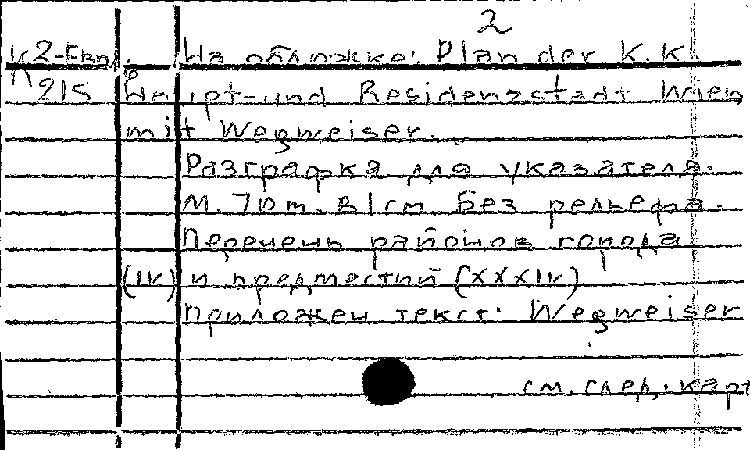 2
К2-Евр. На обложке: Plan der K.K.
К 215 Haupt-und Residenzstadt Wien
mit Wegweiser.
Разграфка для указателя.
М. 70m. в 1см Без рельефа.
Перечень районов города
(IV) и предместий (XXXIV)
Приложен текст: Wegweiser
см. след. карт